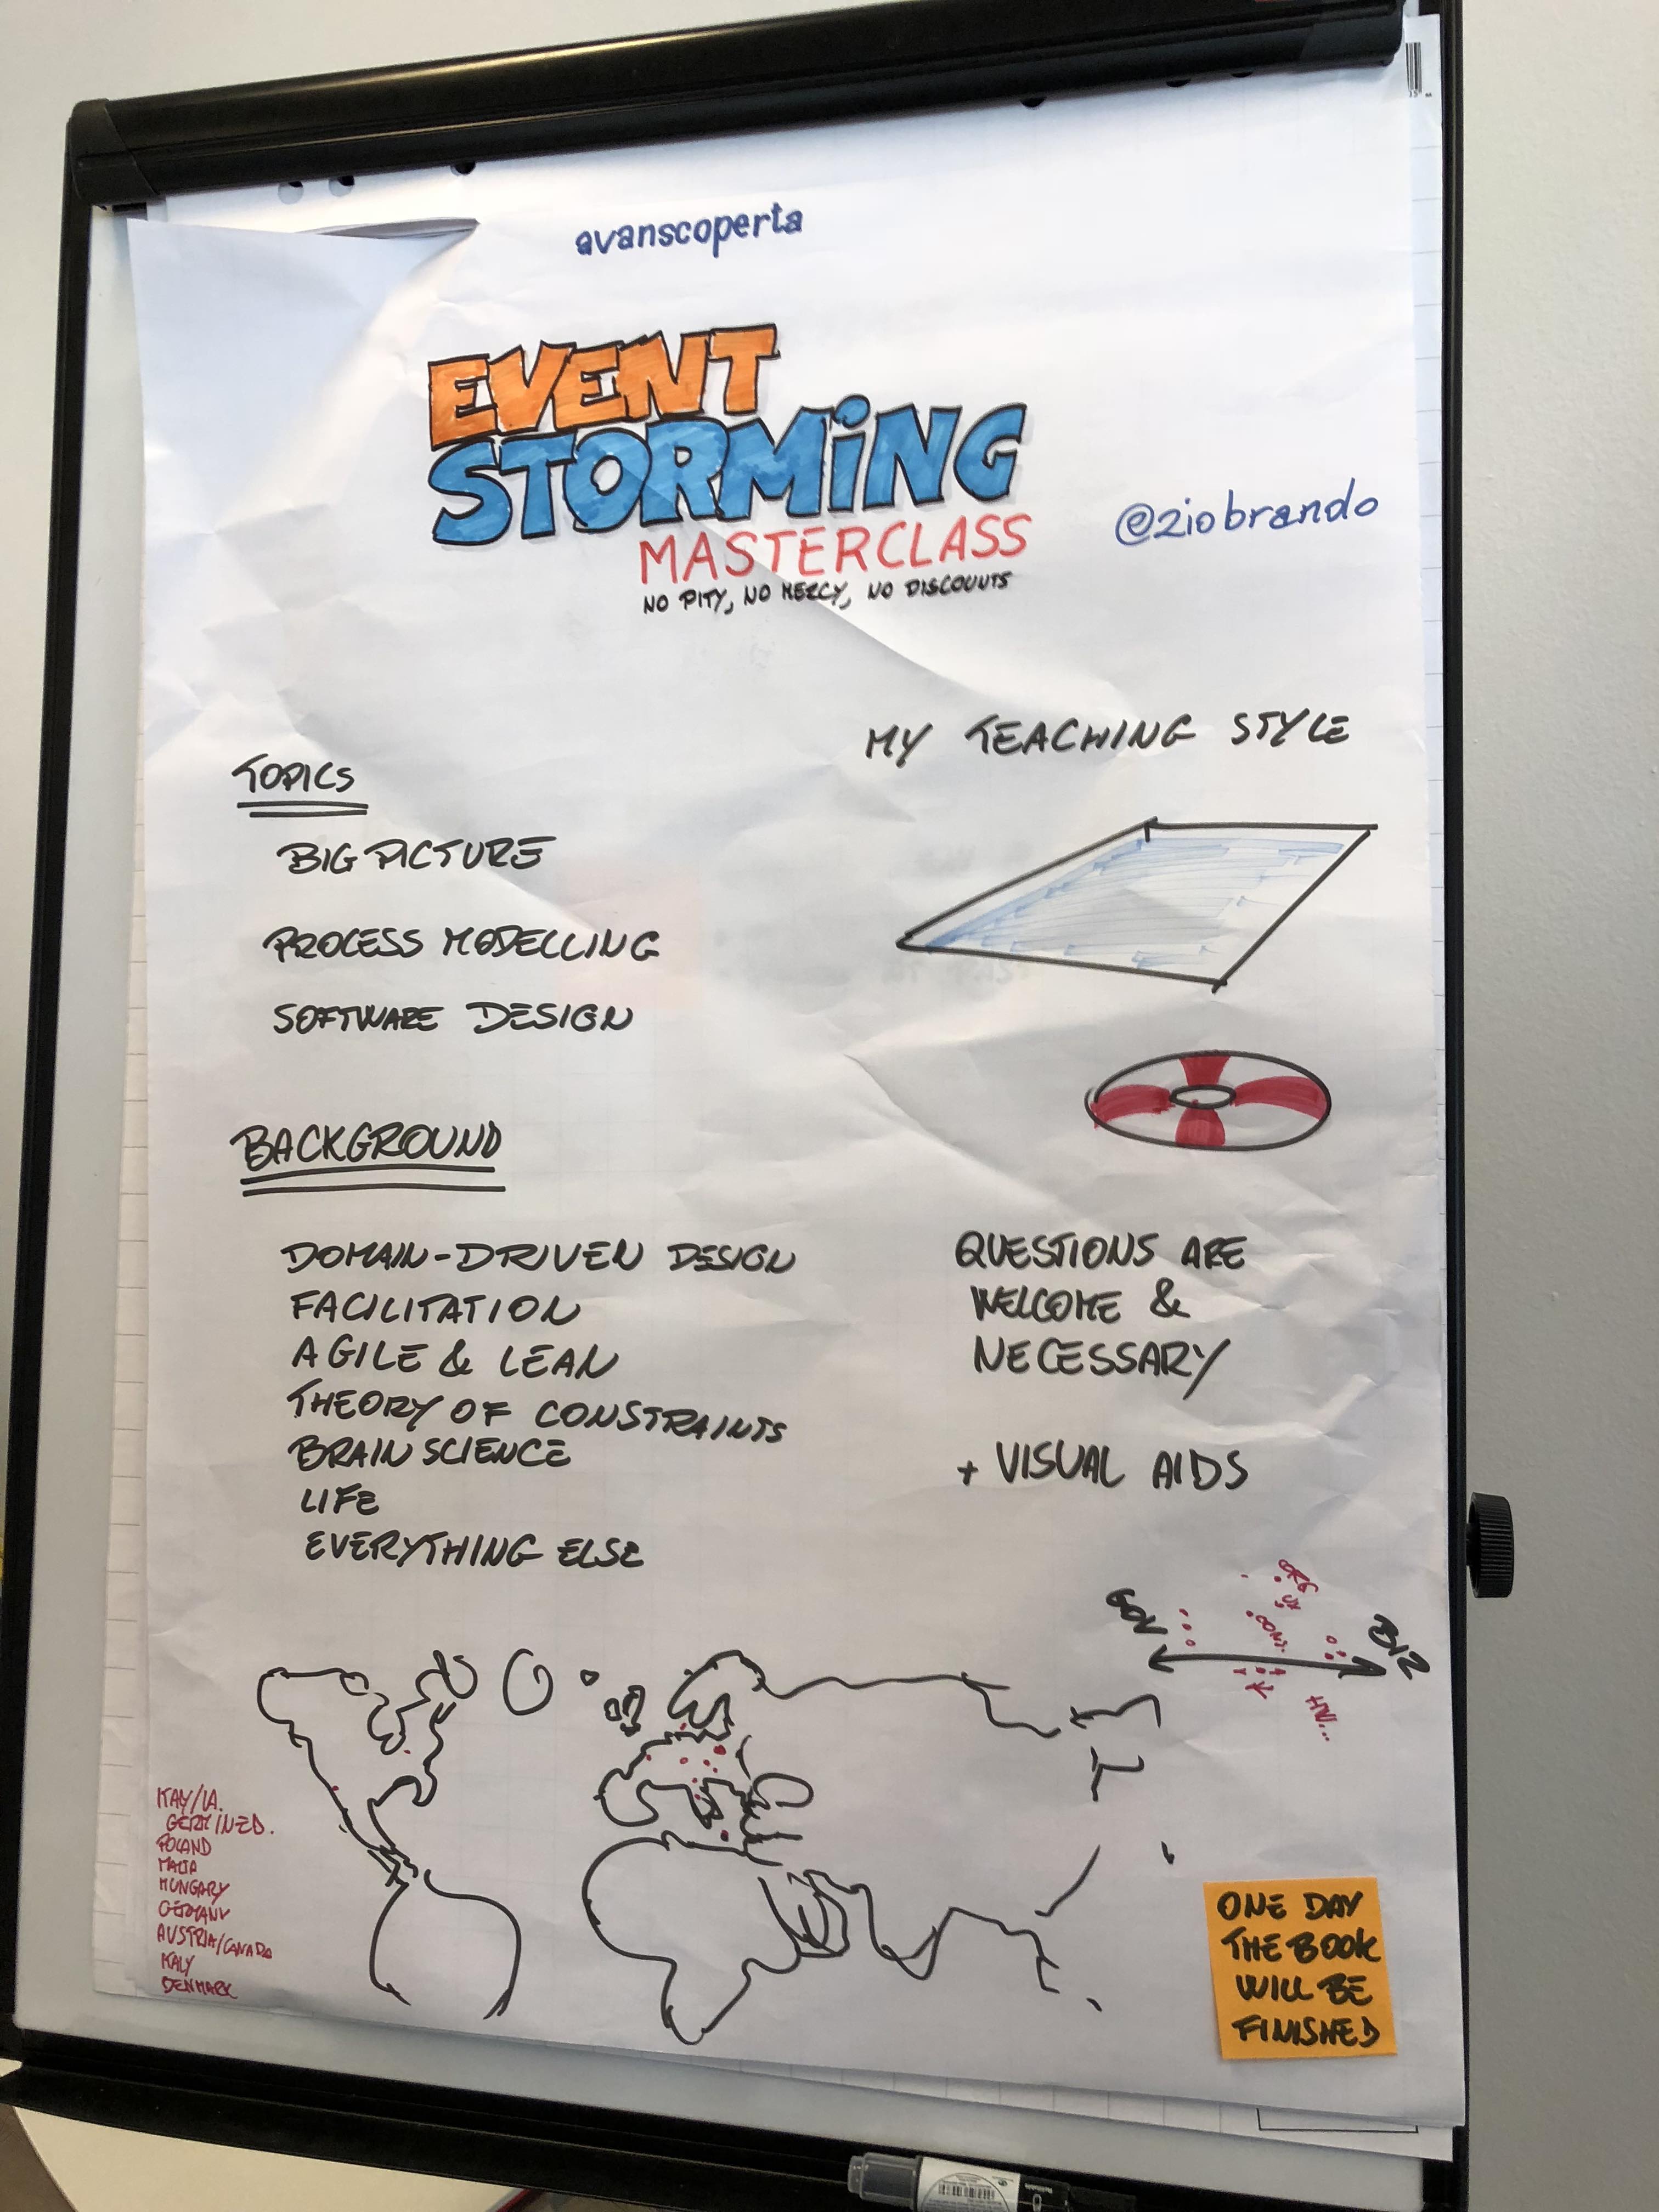 avanscoperta
EVENT
STORMiNG
MASTERCLASS
NO PITY, NO MERCY, NO DISCOUNTS
@ziobrando
TOPICS
BIG PICTURE
PROCESS MODELLING
SOFTWARE DESIGN
BACKGROUND
DOMAIN-DRIVEN DESIGN
FACILITATION
AGILE & LEAN
THEORY OF CONSTRAINTS
BRAIN SCIENCE
LIFE
EVERYTHING ELSE
MY TEACHING STYLE
QUESTIONS ARE
WELCOME &
NECESSARY
+ VISUAL AIDS
ORG
UX
CONT.
BIZ
POLAND
MALTA
HUNGARY
GERMANY
AUSTRIA/CANADA
ITALY
DENMARK
ONE DAY
THE BOOK
WILL BE
FINISHED